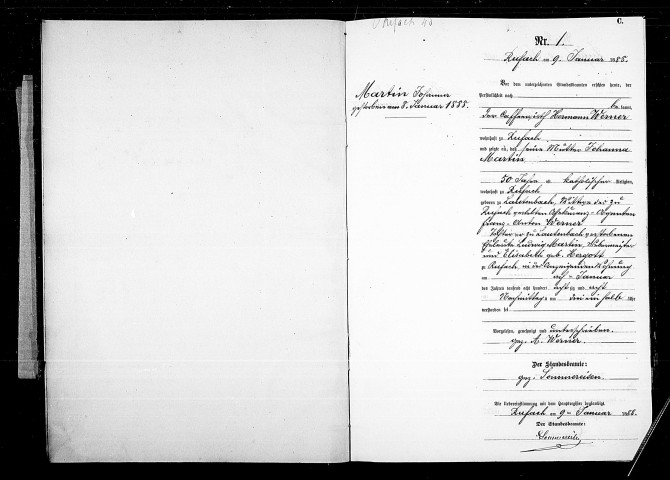 C.
Nr. 1.
Rufach am 9. Januar 1888.
Martin Johanna
gestorben am 8. Januar 1888.
Vor dem unterzeichneten Standesbeamten erschien heute, der
Persönlichkeit nach
bekannt,
der Hermann Werner
wohnhaft zu Rufach
und zeigte an, daß seine Mutter Johanna
Martin
50 Jahre alt, katholischer Religion,
wohnhaft zu Rufach
geboren zu Lautenbach, Wittwe des zu
Rufach verlebten Agenten
Franz Anton Werner
Tochter der zu Lautenbach verstorbenen
Eheleute Ludwig Martin,
und Elisabeth geb. Hergott
zu Rufach, in der Wohnung
am Januar
des Jahres tausend acht hundert achtzig und acht
Nachmittags um drei ein halb Uhr
verstorben sei
Vorgelesen, genehmigt und unterschrieben.
gez. A. Werner.
Der Standesbeamte:
gez. Sommereisen.
Die Uebereinstimmung mit dem Hauptregister beglaubigt.
Rufach am 9ten Januar 1888.
Der Standesbeamte: